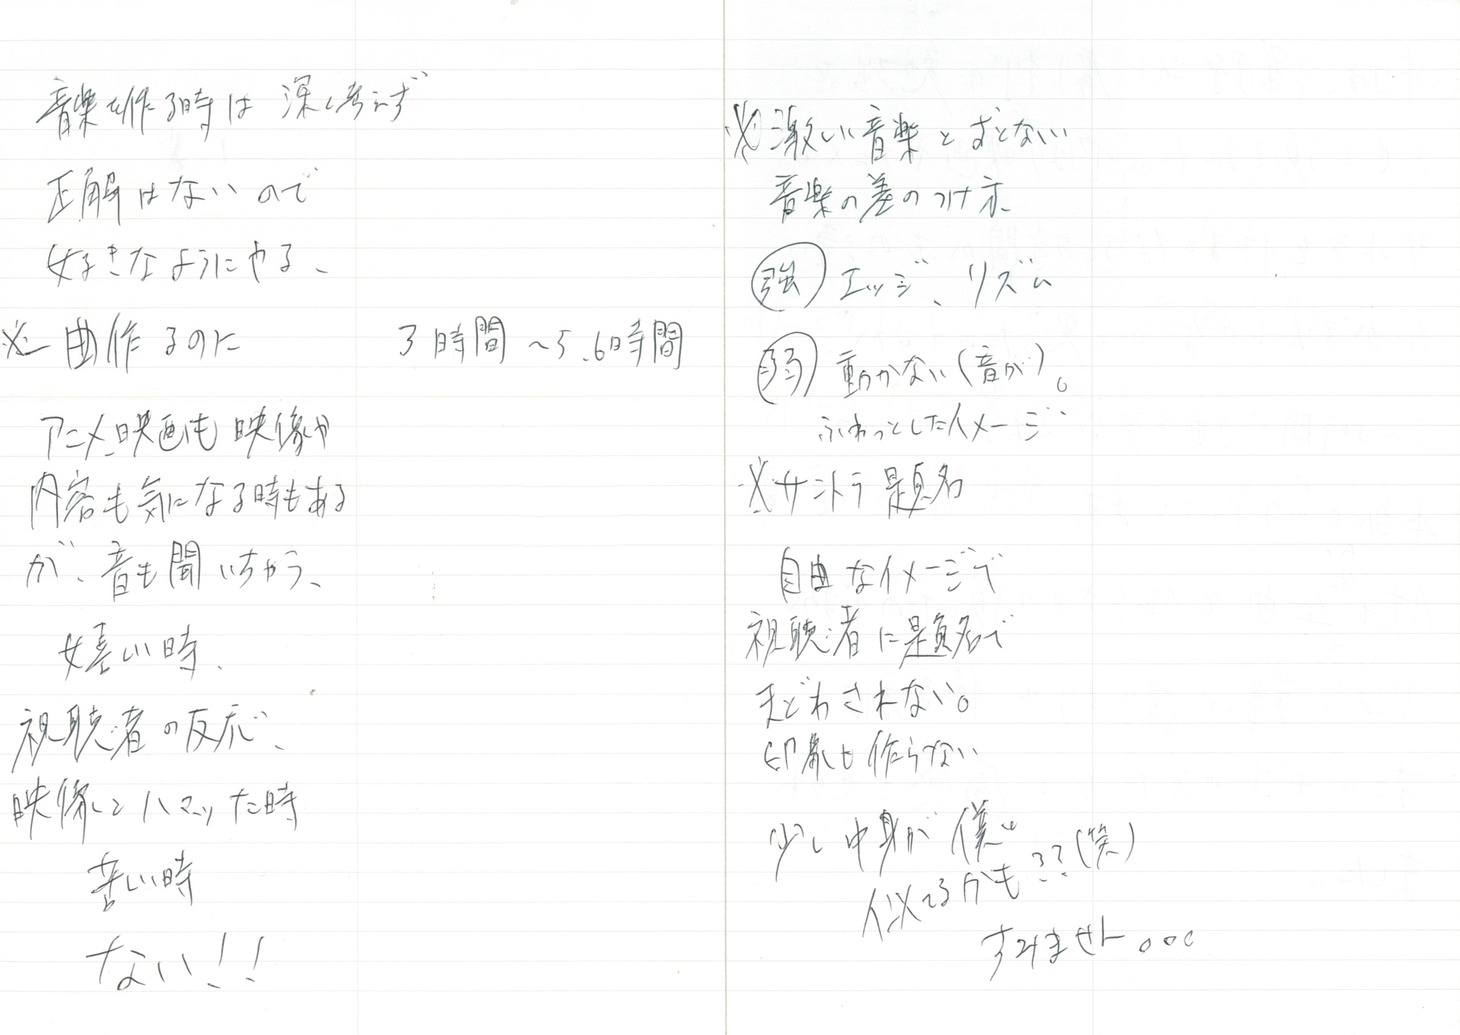 音楽を作る時は 深く考えず
正解はないので
好きなようにやる、
※一曲作るのに 3時間〜5.6時間
アニメ、映画も映像や
内容も気になる時もある
が、音も聞いちゃう、
嬉しい時、
視聴者の反応、
映像とハマッた時
苦しい時
ない!!
※激しい音楽とそうでない
音楽の差のつけ方、
強 エッジ、リズム
弱 動かない(音が)。
ふわっとしたイメージ
※サントラ 題名
自由なイメージで
視聴者に題名で
まどわされない。
印象も作らない
少し中身が僕に
似てるかも??(笑)
すみません。。。